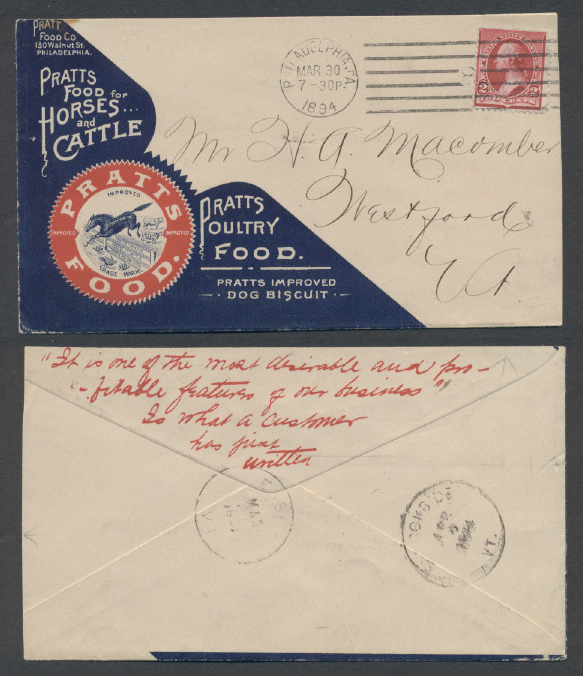 PRATT
FOOD CO
130 Walnut St.
PHILADELPHIA.
PRATTS
FOOD for
HORSES...
and
CATTLE
PRATTS
IMPROVED
IMPROVED
IMPROVED
TRADE MARK
FOOD.
PRATTS
POULTRY
FOOD.
PRATTS IMPROVED
DOG BISCUIT
PHILADELPHIA, PA.
MAR 30
7-30P.
1894
Mr H. A. Macomber
Westford
Vt.
"It is one of the most desirable and pro-
-fitable features of our business"
Is what a customer
has just
written
MAR
APR
1894
VT.